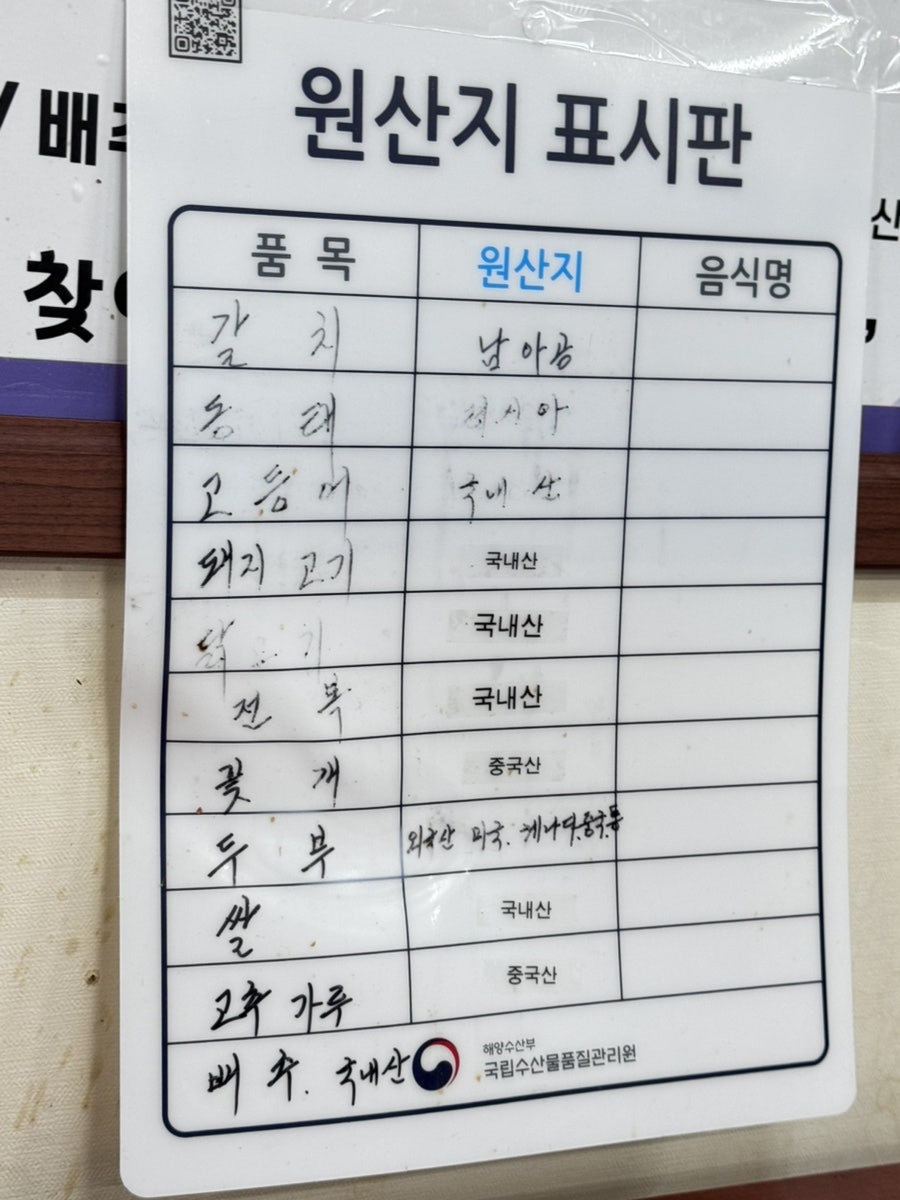 원산지 표시판
품 목 원산지 음식명
갈 치 남아공
동 태 러시아
고등어 국내산
돼지고기 국내산
국내산
전 복 국내산
꽃 개 중국산
두 부 외국산 미국. 캐나다.중국.등
쌀 국내산
고추가루 중국산
배 추. 국내산
해양수산부
국립수산물품질관리원